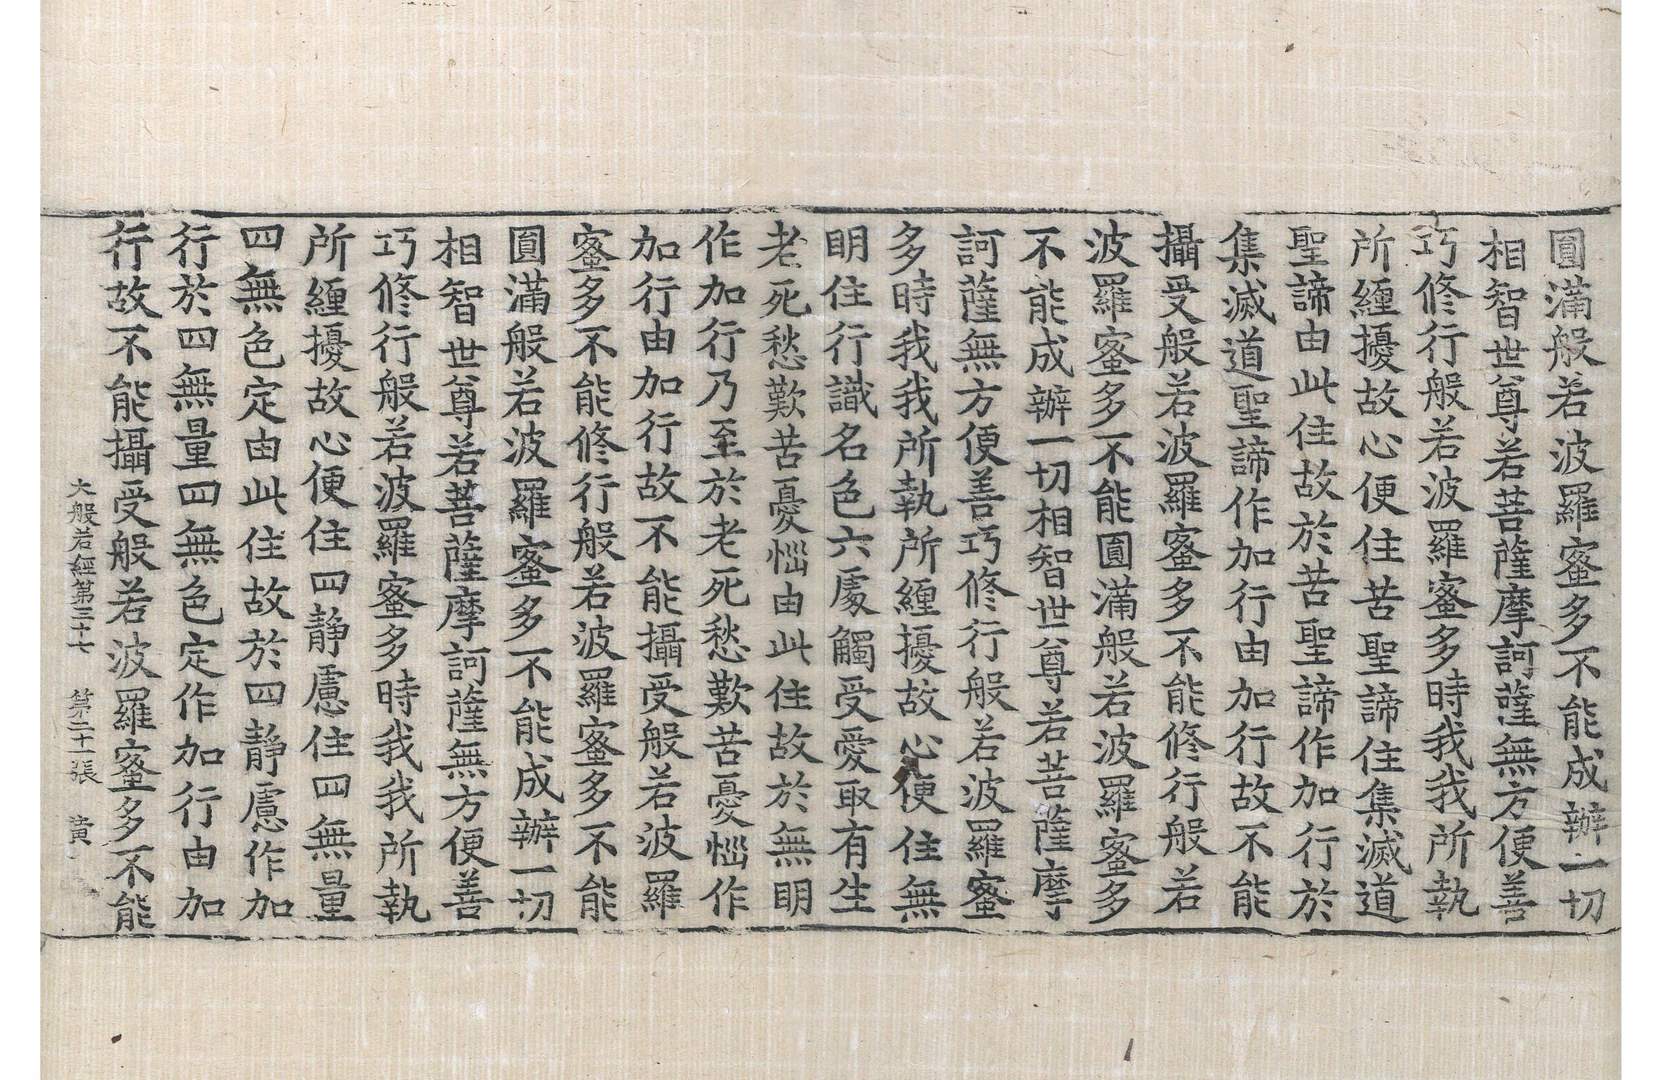 圓滿般若波羅蜜多不能成辦一切
相智世尊若菩薩摩訶薩無方便善
巧修行般若波羅蜜多時我我所執
所纏擾故心便住苦聖諦住集滅道
聖諦由此住故於苦聖諦作加行於
集滅道聖諦作加行由加行故不能
攝受般若波羅蜜多不能修行般若
波羅蜜多不能圓滿般若波羅蜜多
不能成辦一切相智世尊若菩薩摩
訶薩無方便善巧修行般若波羅蜜
多時我我所執所纏擾故心便住無
明住行識名色六處觸受愛取有生
老死愁歎苦憂惱由此住故於無明
作加行乃至於老死愁歎苦憂惱作
加行由加行故不能攝受般若波羅
蜜多不能修行般若波羅蜜多不能
圓滿般若波羅蜜多不能成辦一切
相智世尊若菩薩摩訶薩無方便善
巧修行般若波羅蜜多時我我所執
所纏擾故心便住四靜慮住四無量
四無色定由此住故於四靜慮作加
行於四無量四無色定作加行由加
行故不能攝受般若波羅蜜多不能
大般若經第三十七 第二十一張 黃